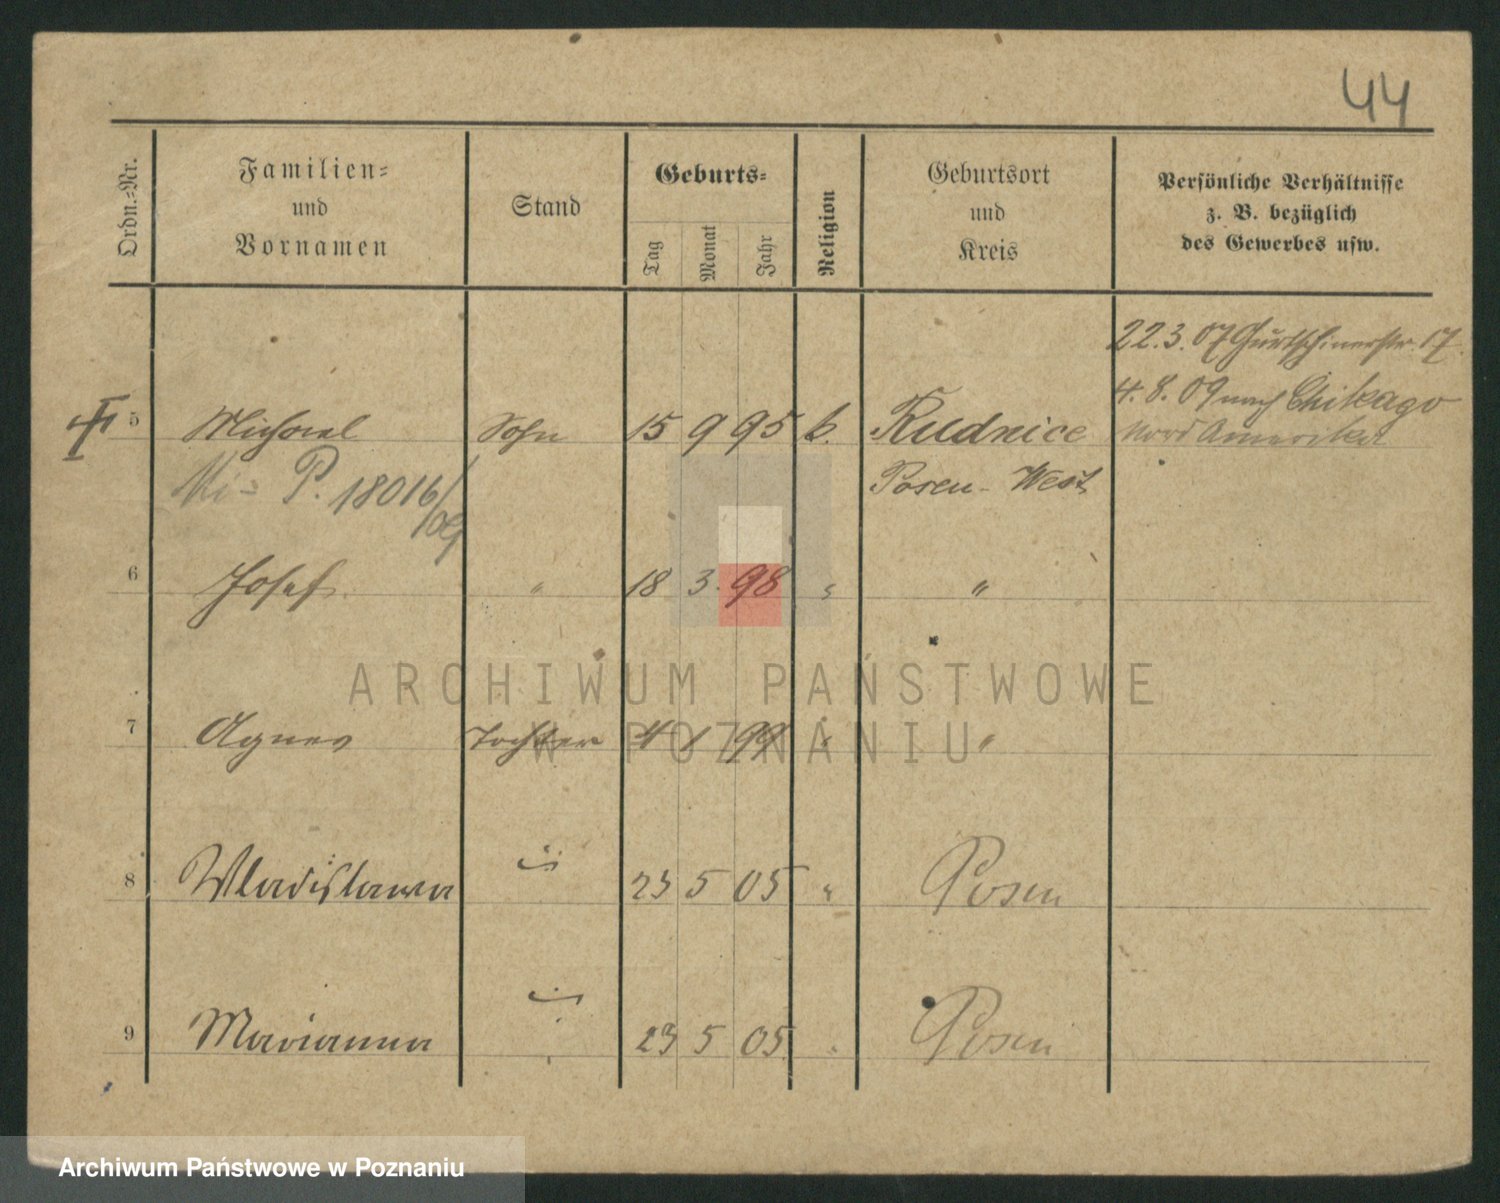 44
Ordn.-Nr.
Familien-
und
Vornamen
Stand
Geburts-
Tag
Monat
Jahr
Religion
Geburtsort
und
Kreis
Persönliche Verhältnisse
z. B. bezüglich
des Gewerbes usw.
22.3.07 Gurtschinerstr. 17
4.8.09 nach Chikago
Nord Amerika
5 Michael Sohn 15 9 95 k. Rudnice
P. 18016/09 Posen-West
6 Josef " 18 3. 98 " "
7 Agnes Tochter 4 1 99 " "
8 Wladislawa " 23 5 05 " Posen
9 Marianna " 23 5 05 " Posen
ARCHIWUM PAŃSTWOWE
W POZNANIU
Archiwum Państwowe w Poznaniu